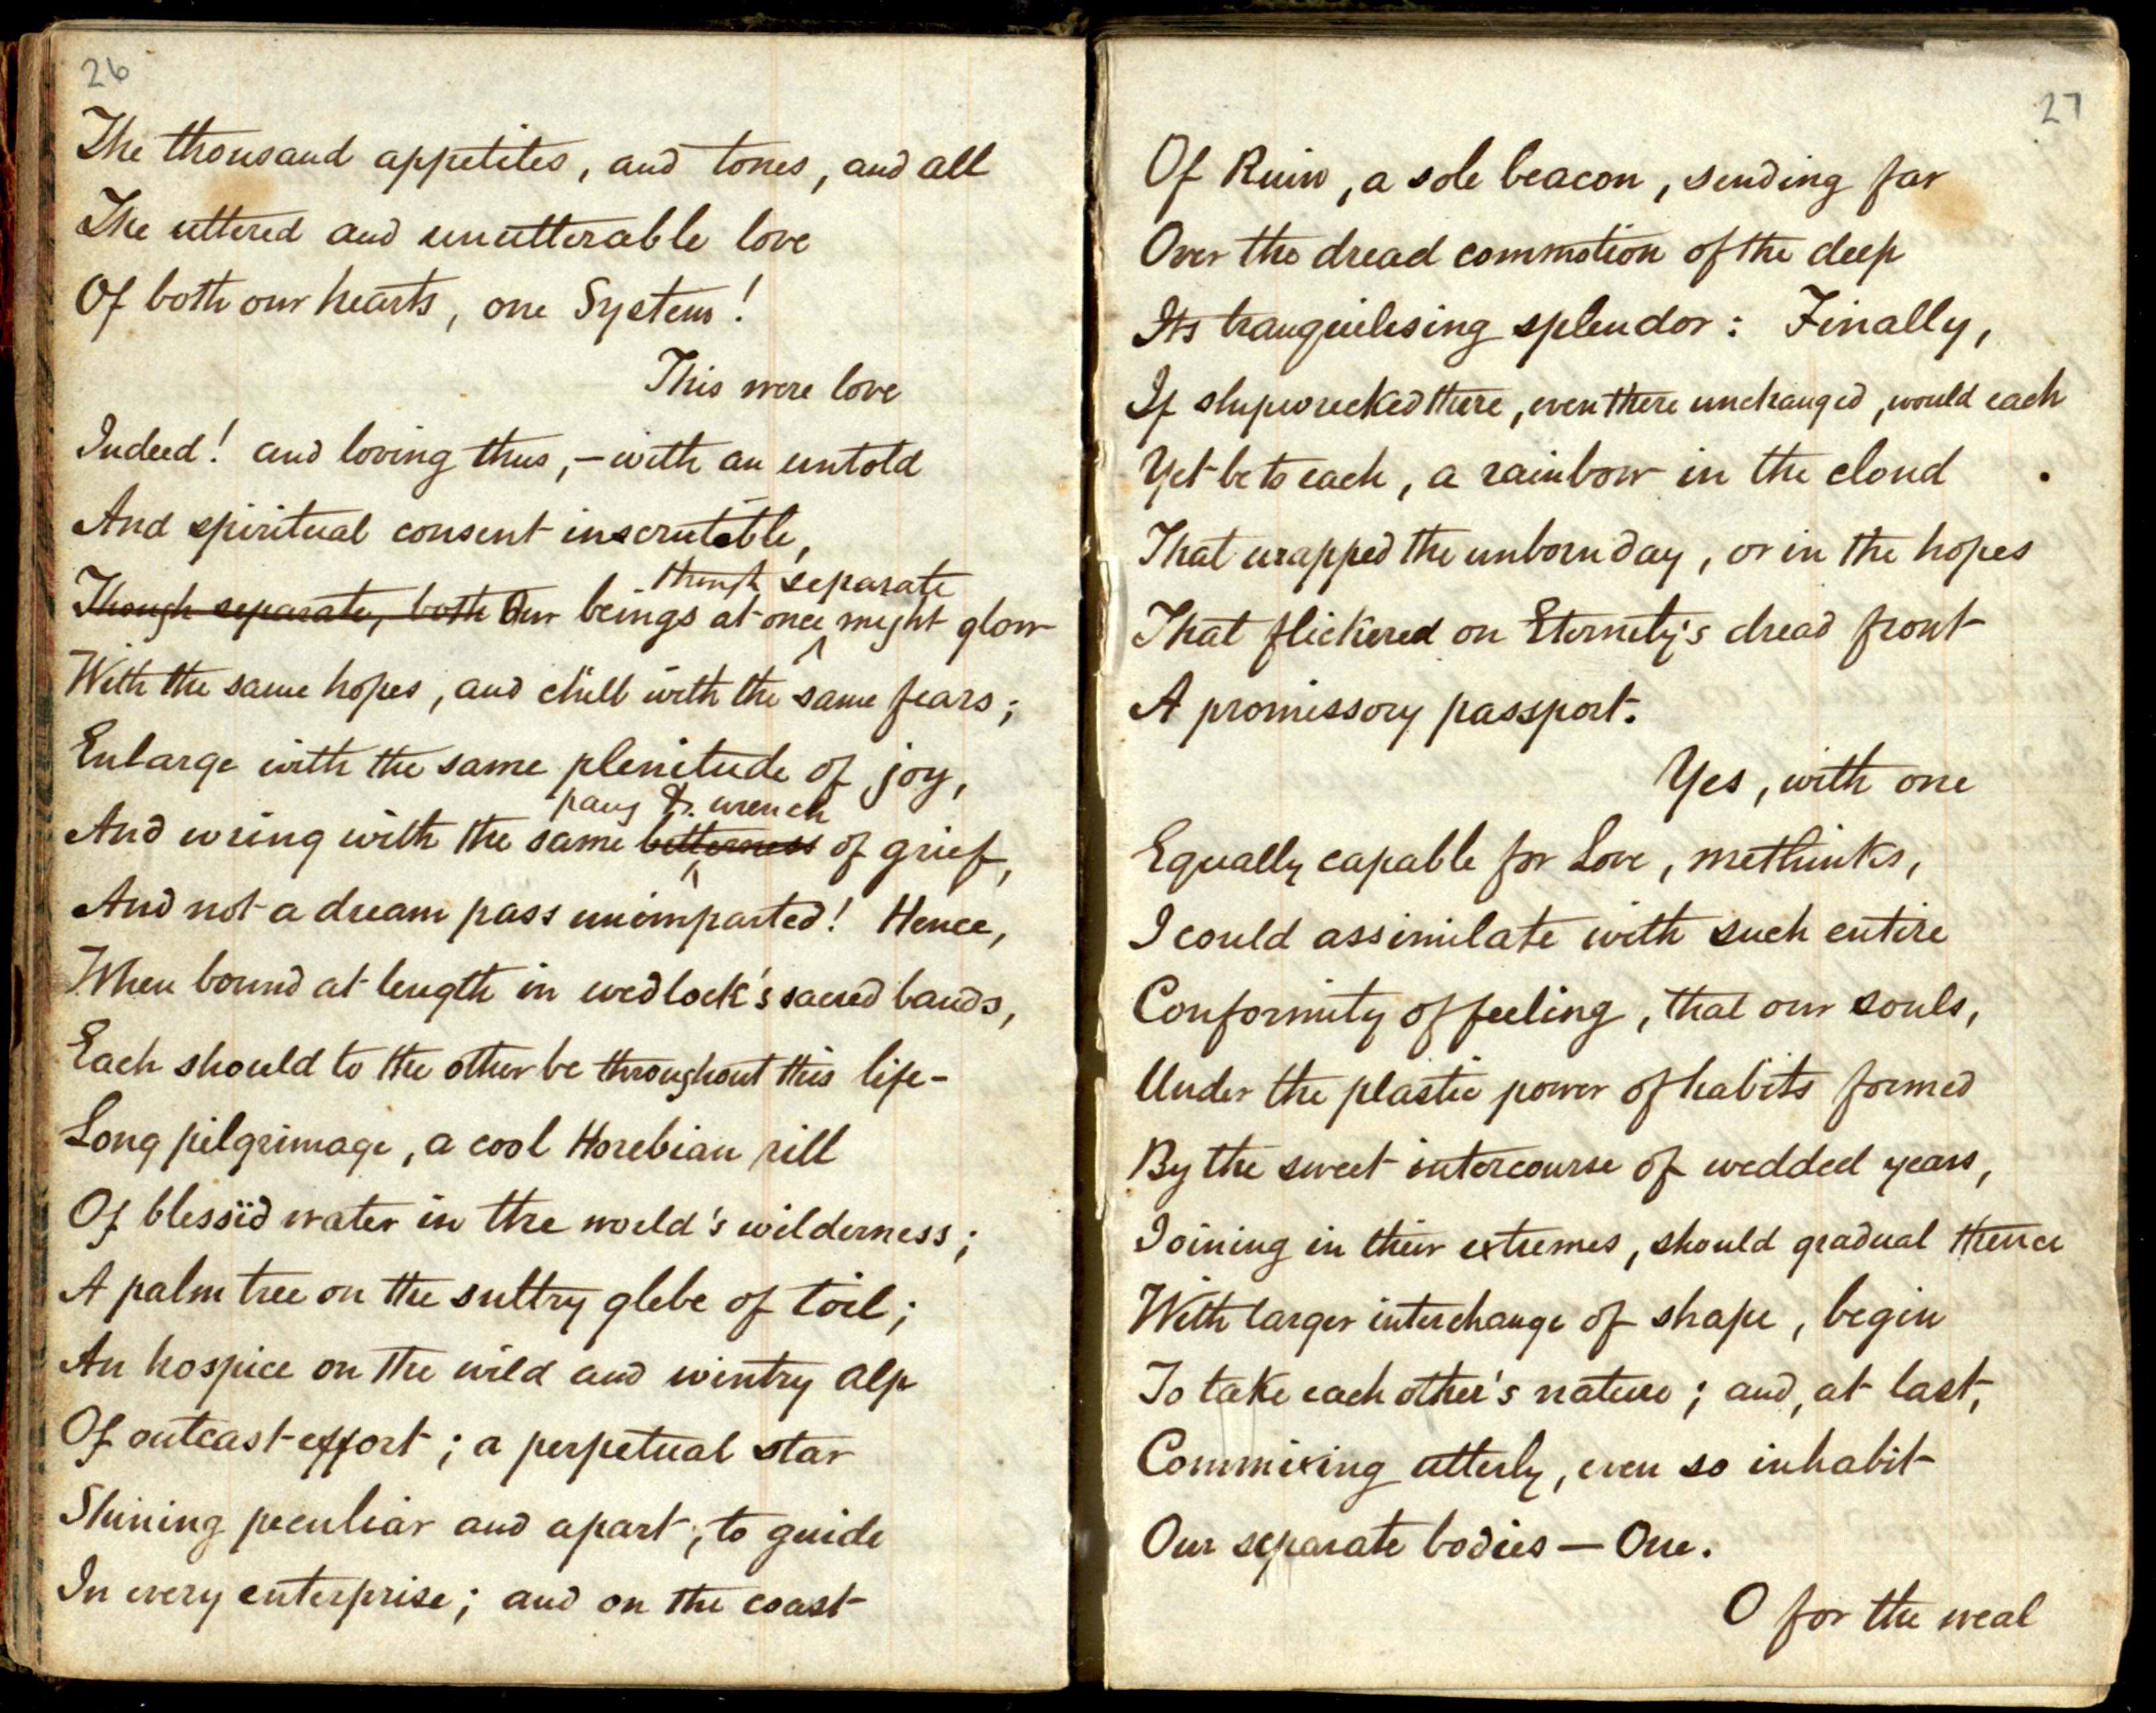 26
The thousand appetites, and tones, and all
The uttered and unutterable love
Of both our hearts, one System!
This were love
Indeed! and loving thus,—with an untold
And spiritual consent inscrutable,
though separate
Though separate, both Our beings at once might glow
With the same hopes, and chill with the same fears;
Enlarge with the same plenitude of joy,
pang & wrench
And wring with the same bitterness of grief,
And not a dream pass unimparted! Hence,
When bound at length in wedlock's sacred bands,
Each should to the other be throughout this life-
Long pilgrimage, a cool Horebian rill
Of blessïd water in the world's wilderness;
A palm tree on the sultry glebe of toil;
An hospice on the wild and wintry alp
Of outcast effort; a perpetual star
Shining peculiar and apart, to guide
In every enterprise; and on the coast
27
Of Ruin, a sole beacon, sending far
Over the dread commotion of the deep
Its tranquilising splendor: Finally,
If shipwrecked there, even there unchanged, would each
Yet be to each, a rainbow in the cloud
That wrapped the unborn day, or in the hopes
That flickered on Eternity's dread front
A promissory passport.
Yes, with one
Equally capable for Love, methinks,
I could assimilate with such entire
Conformity of feeling, that our souls,
Under the plastic power of habits formed
By the sweet intercourse of wedded years,
Joining in their extremes, should gradual thence
With larger interchange of shape, begin
To take each other's nature; and, at last,
Commixing utterly, even so inhabit
Our separate bodies—One.
O for the weal